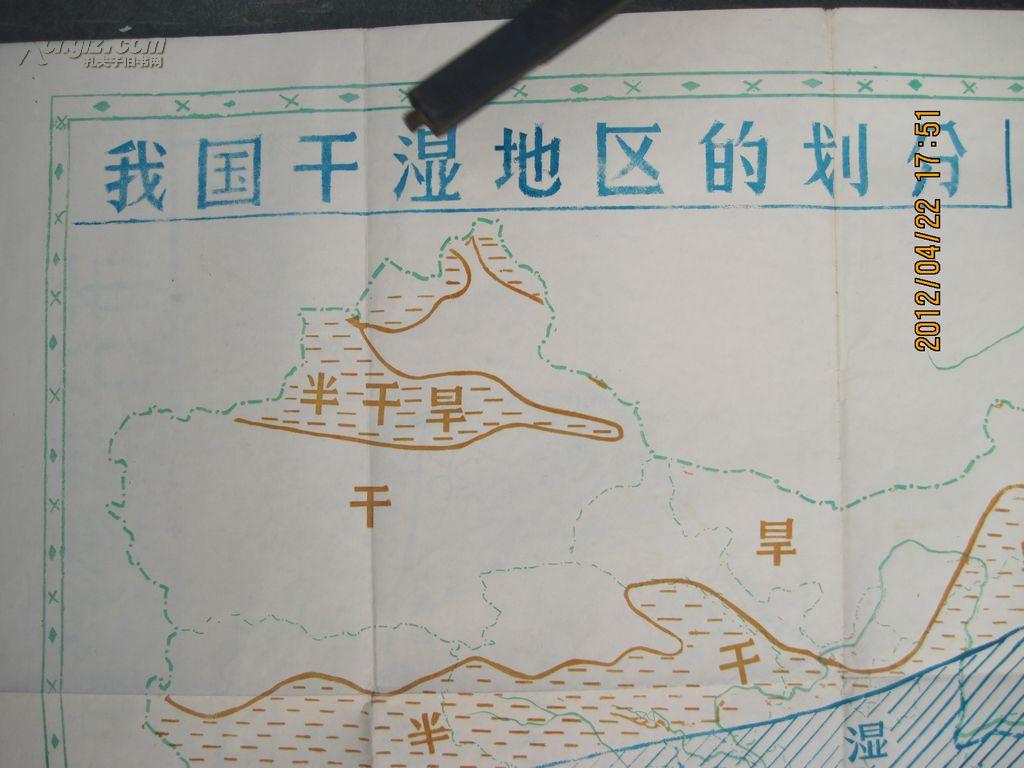 孔夫子旧书网
我国干湿地区的划分
2012/04/22 17:51
半干旱
干
旱
干
半
湿